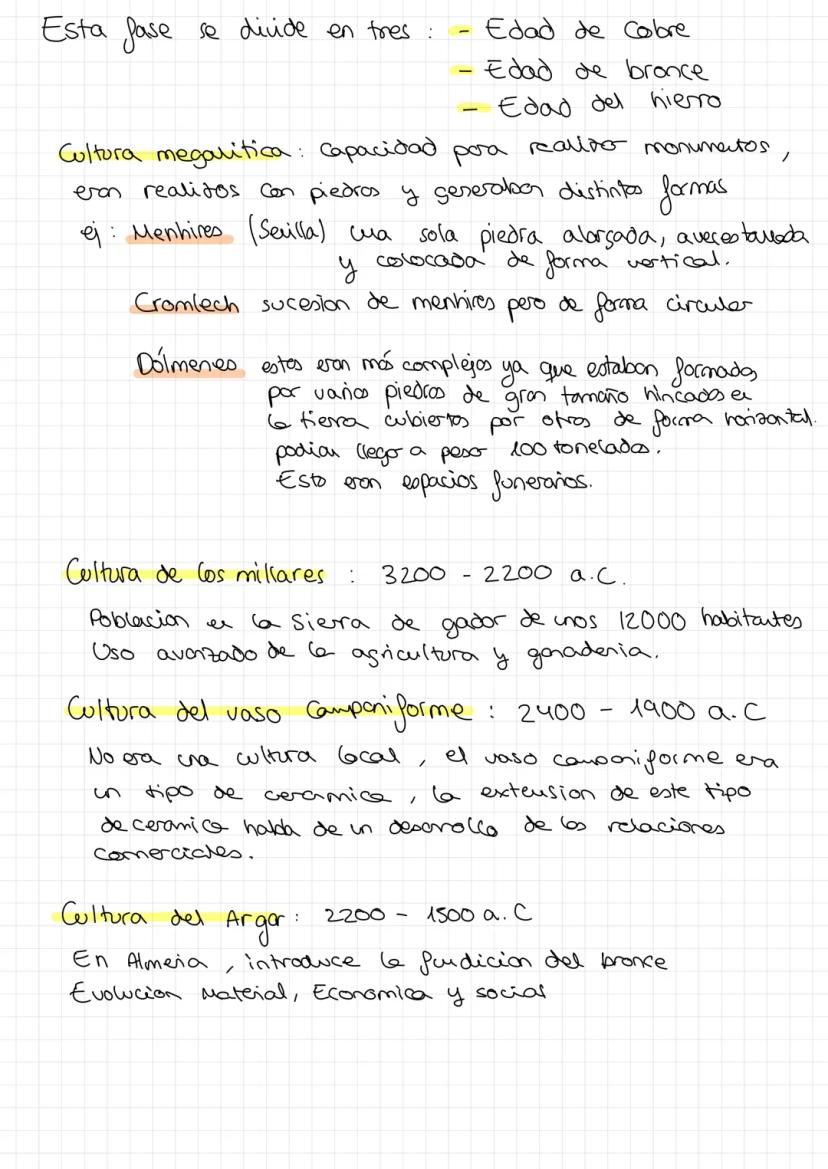 Esta fase se divide en tres : - Edad de Cobre
- Edad de bronce
- Edad del hierro
Cultura megalitica : capacidad para realizar monumentos,
eran realizados con piedras y generaban distintas formas
ej : Menhires (Sevilla) una sola piedra alargada, a veces tallada
y colocada de forma vertical.
Cromlech sucesion de menhires pero de forma circular
Dólmenes estos eran más complejos ya que estaban formados
por varias piedras de gran tamaño hincadas en
la tierra cubiertas por otras de forma horizontal.
podian llegar a pesar 100 toneladas.
Esto eran espacios funerarios.
Cultura de los millares : 3200 - 2200 a.C.
Poblacion en la Sierra de gador de unos 12000 habitantes
Uso avanzado de la agricultura y ganaderia.
Cultura del vaso Campaniforme : 2400 - 1900 a.C
No era una cultura local, el vaso campaniforme era
un tipo de ceramica, la extension de este tipo
de ceramica habla de un desarrollo de las relaciones
comerciales.
Cultura del Argar : 2200 - 1500 a.C
En Almeria, introduce la fundicion del bronce
Evolucion Material, Economica y social